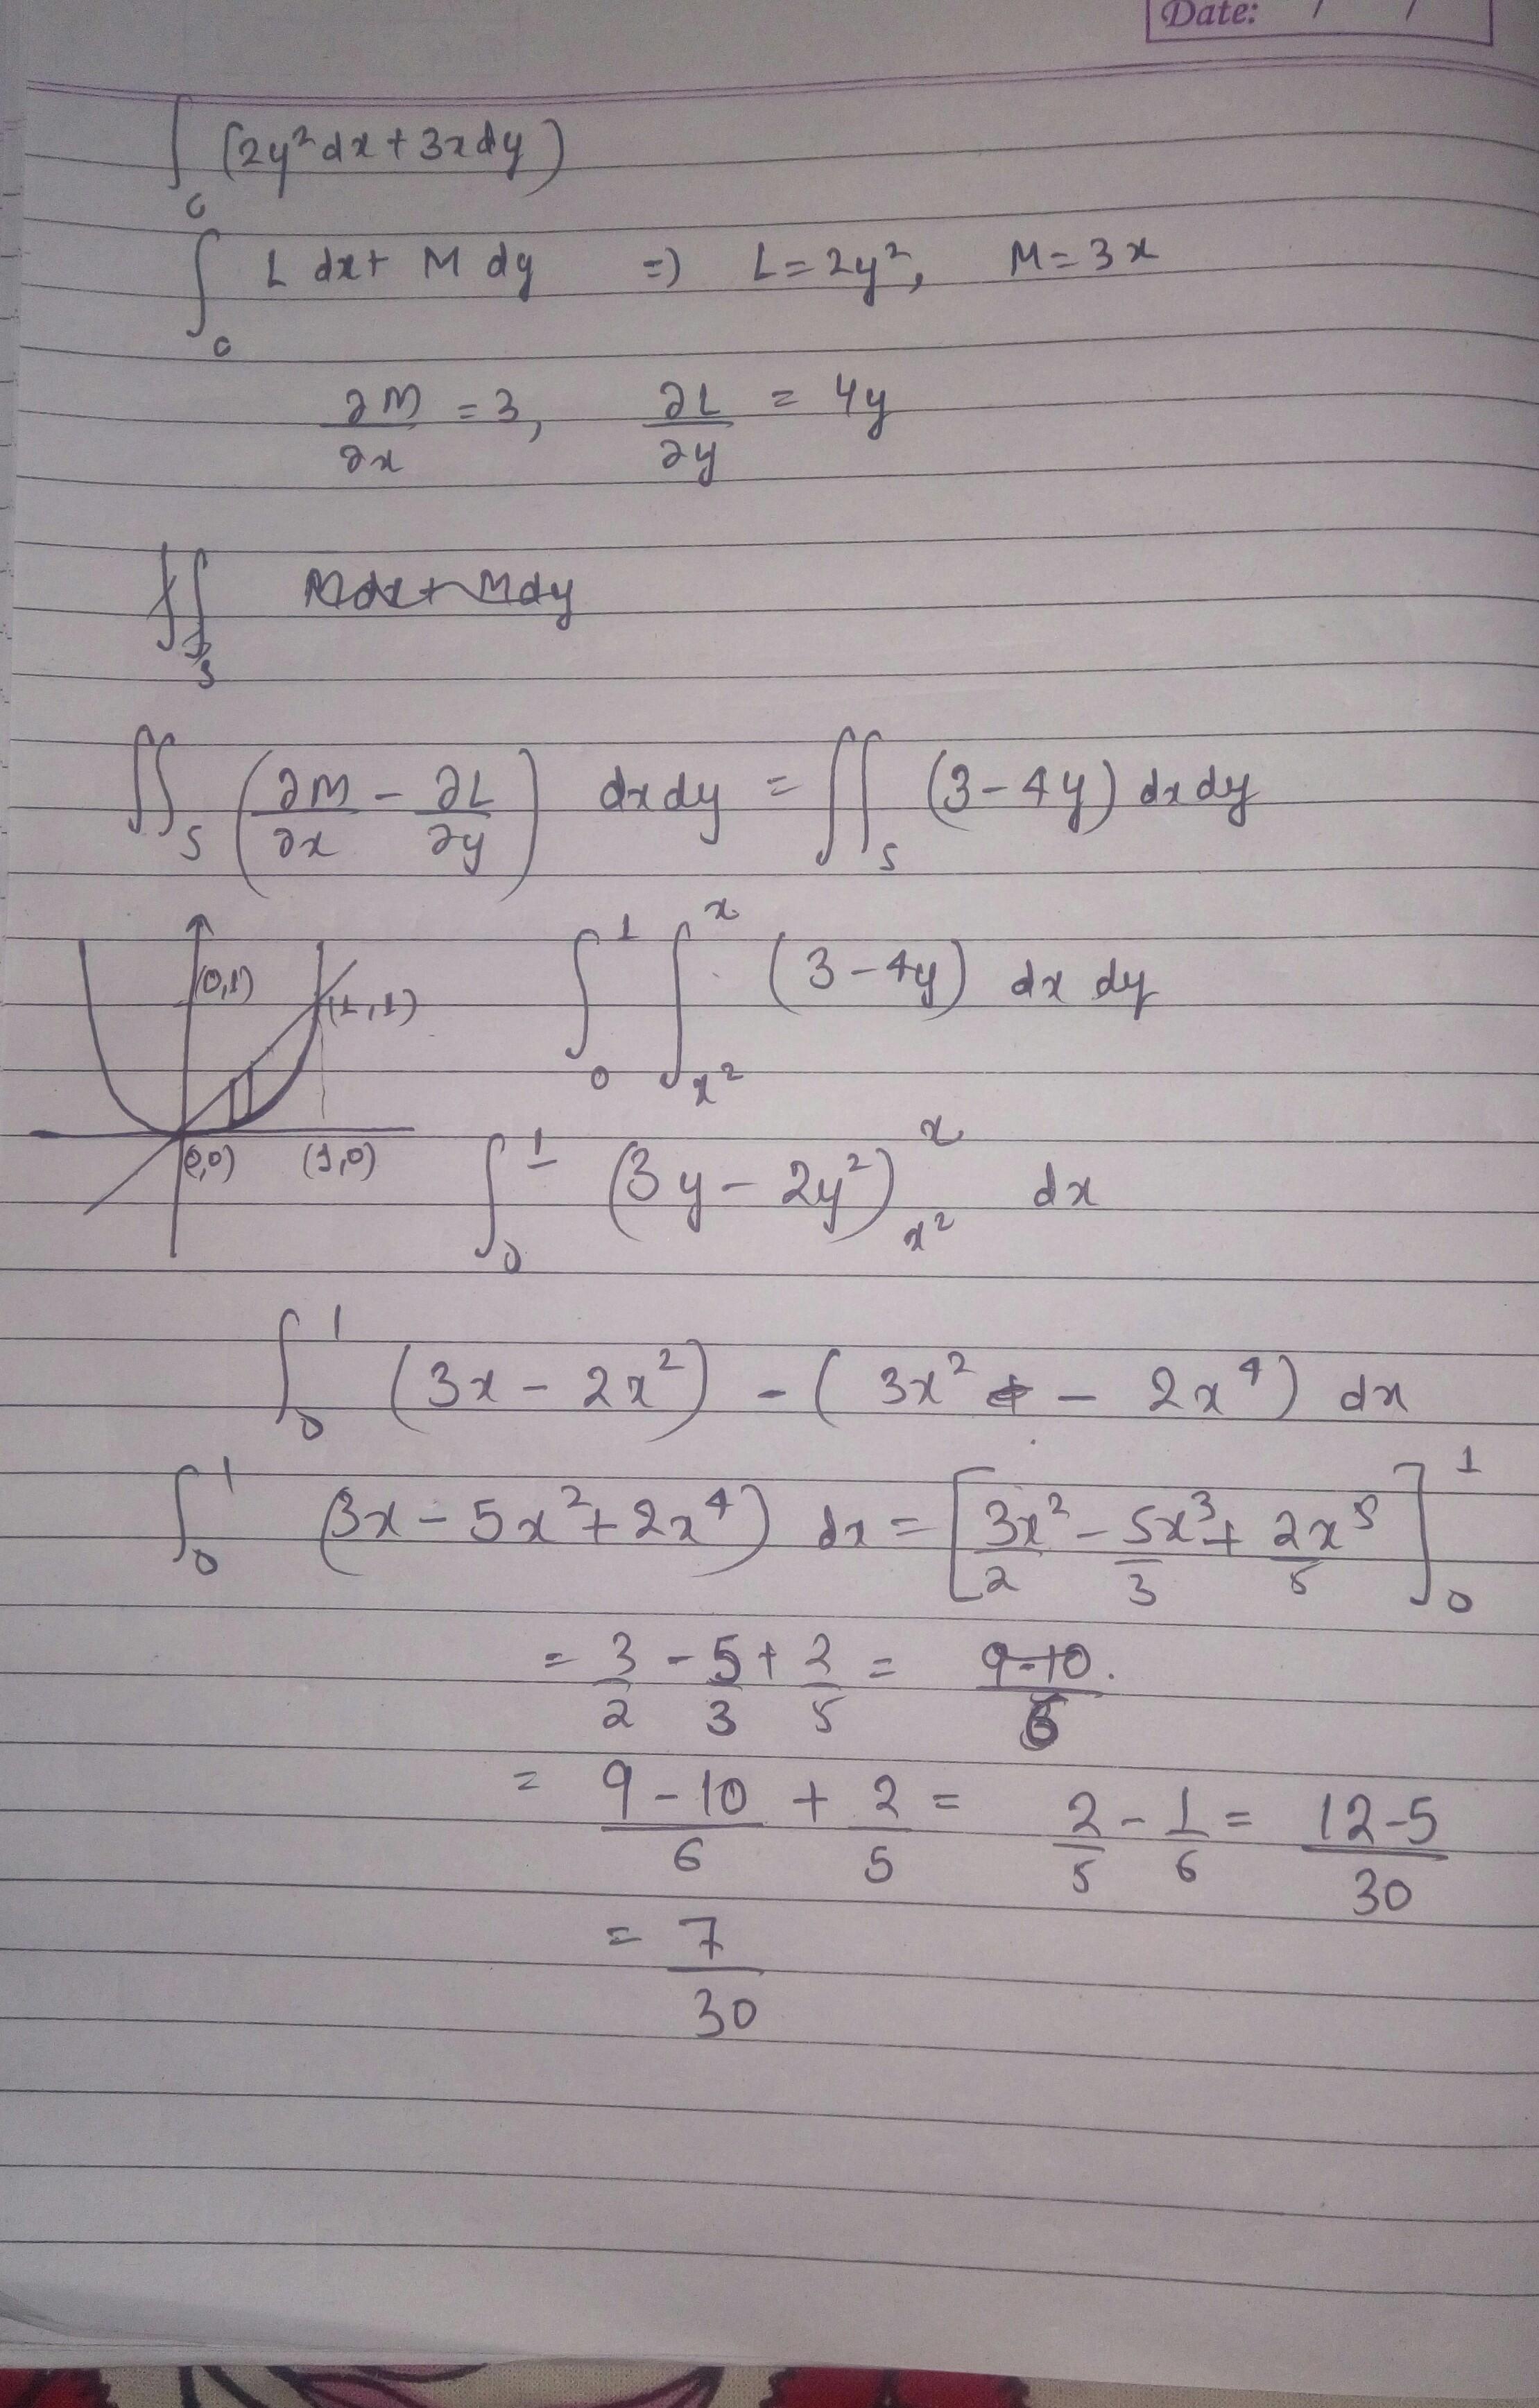 Date: / /
∫_C (2y² dx + 3x dy)
∫_C L dx + M dy ⇒ L = 2y², M = 3x
∂M/∂x = 3, ∂L/∂y = 4y
∬_S Mdx + Mdy
∬_S (∂M/∂x − ∂L/∂y) dx dy = ∬_S (3 − 4y) dx dy
(0,1)
(1,1)
(0,0) (1,0)
∫_0^1 ∫_{x²}^{x} (3 − 4y) dx dy
∫_0^1 (3y − 2y²)_{x²}^{x} dx
∫_0^1 (3x − 2x²) − (3x² − 2x⁴) dx
∫_0^1 (3x − 5x² + 2x⁴) dx = [3x²/2 − 5x³/3 + 2x⁵/5]_0^1
= 3/2 − 5/3 + 2/5 = 9-10/6
= 9 − 10/6 + 2/5 = 2/5 − 1/6 = 12-5/30
= 7/30